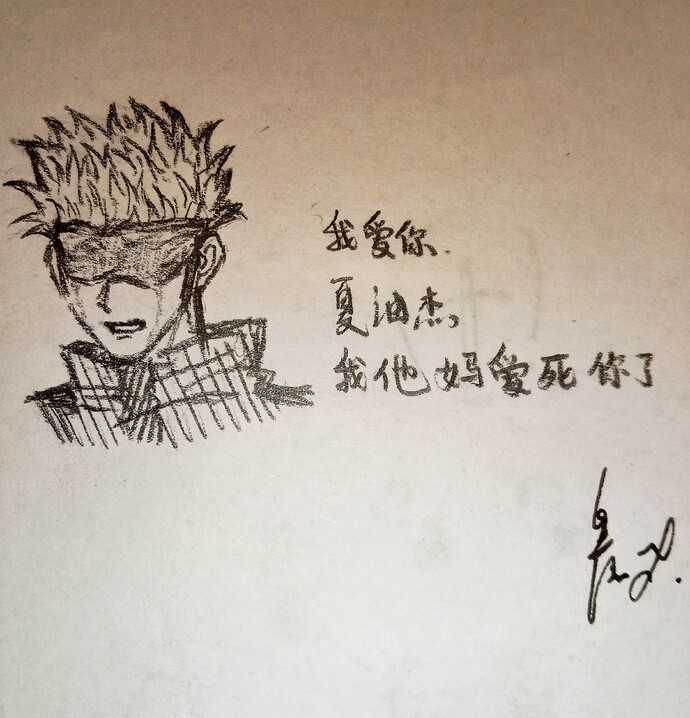 我爱你.
夏油杰,
我他妈爱死你了